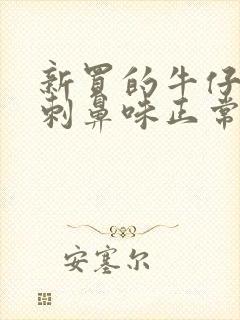 新买的牛仔
刺鼻味正常
安塞尔